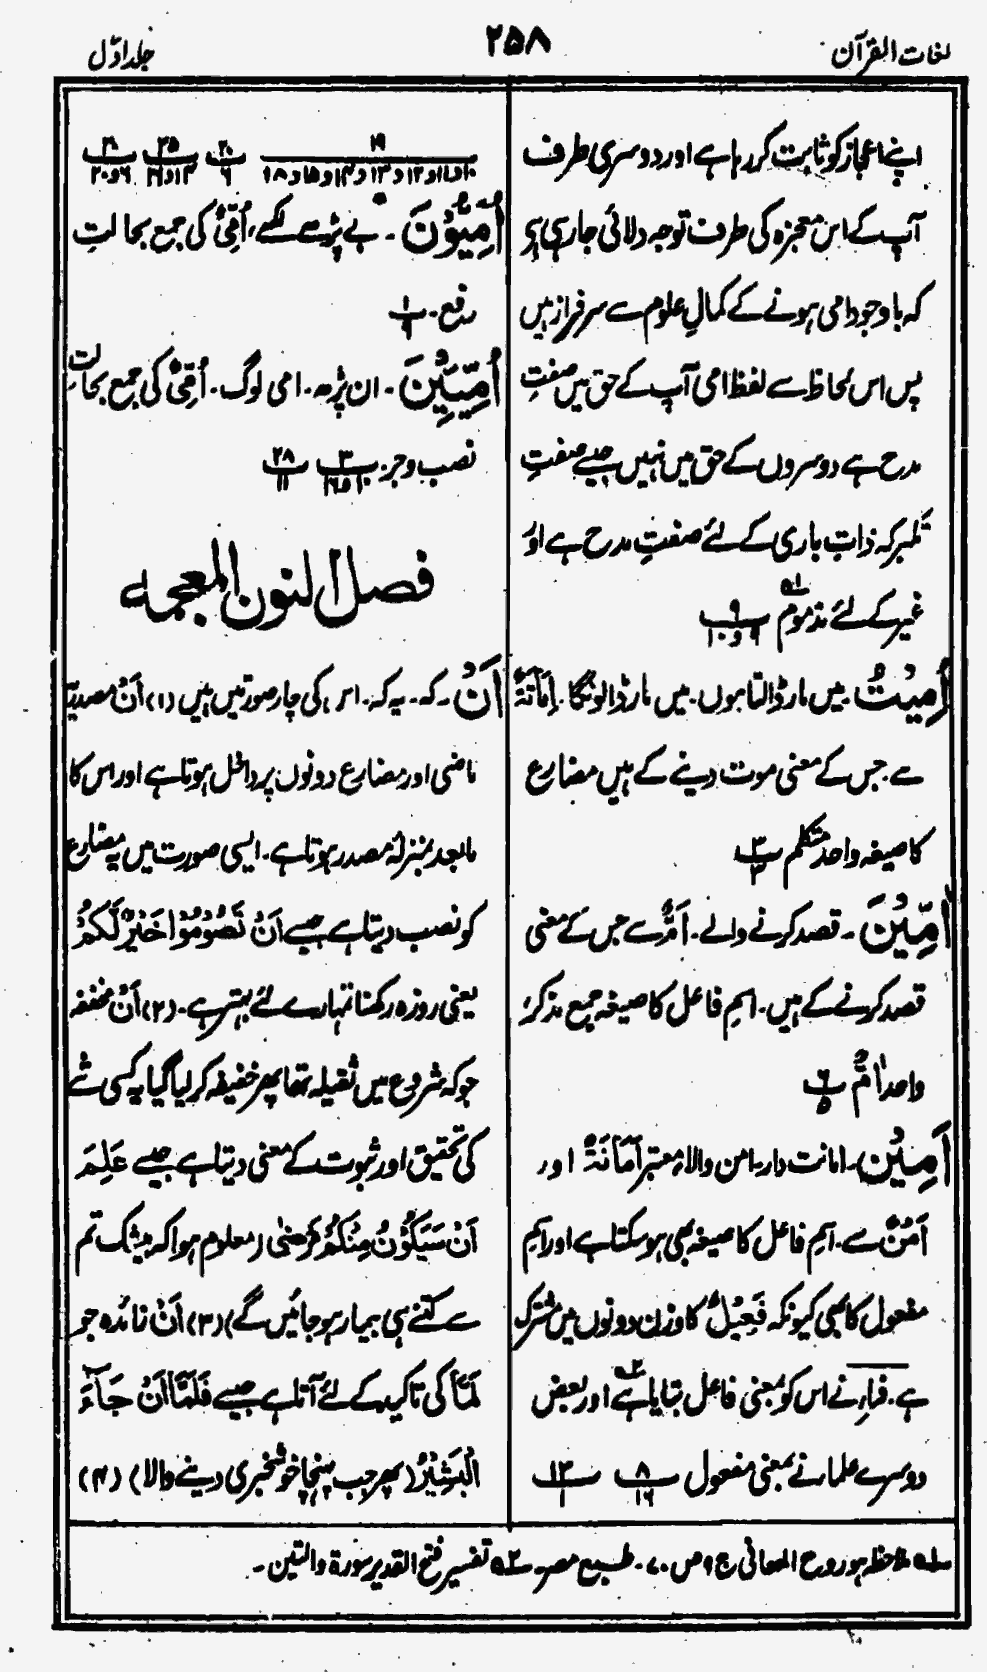 لغات القرآن
۲۵۸
جلد اوّل
اپنے اعجاز کو ثابت کر رہا ہے اور دوسری طرف
آپ کے اس معجزہ کی طرف توجہ دلائی جا رہی ہے
کہ باوجود امی ہونے کے کمالِ علوم سے سرفراز ہیں
پس اس لحاظ سے لفظ امی آپ کے حق میں صفتِ
مدح ہے دوسروں کے حق میں نہیں جیسے صفتِ
تکبر کہ ذاتِ باری کے لئے صفتِ مدح ہے اور
غیر کے لئے مذموم لہ ۹ / ۹ و ۱۰
اُمِیْتُ ۔ میں مار ڈالتا ہوں۔ میں مار ڈالونگا۔ اِمَاتَةٌ
سے جس کے معنی موت دینے کے ہیں مضارع
کا صیغہ واحد متکلم ۳
اٰمِّیْنَ ۔ قصد کرنے والے۔ اَمٌّ سے جس کے معنی
قصد کرنے کے ہیں۔ اسمِ فاعل کا صیغہ جمع مذکر،
واحد اٰمٌّ ۶ / ۵
اَمِیْنٌ۔ امانت دار۔ امن والا، معتبر اَمَانَةٌ اور
اَمْنٌ سے۔ اسمِ فاعل کا صیغہ بھی ہو سکتا ہے اور اسمِ
مفعول کا بھی کیونکہ فَعِیْلٌ کا وزن دونوں میں مشترک
ہے۔ فراء نے اس کو بمعنی فاعل بتایا ہے ۲ اور بعض
دوسرے علماء نے بمعنی مفعول ۸ / ۱۶ ۱۳ / ۱
۱۹ / ۱۰ و ۱۱ و ۱۲ و ۱۳ و ۱۴ و ۱۵ و ۱۸ ۲۰ / ۶ ۲۵ / ۱۳ و ۱۶ ۳۰ / ۶ و ۲۰
اُمِّیُّوْنَ ۔ بے پڑھے لکھے، اُمِّیٌّ کی جمع بحالتِ
رفع۔ ۱ / ۹
اُمِّیّٖنَ ۔ ان پڑھ۔ امی لوگ۔ اُمِّیٌّ کی جمع بحالتِ
نصب و جر۔ ۳ / ۱۰ و ۱۶ ۲۸ / ۱۱
فصل النون المعجمہ
اَنْ ۔ کہ۔ یہ کہ۔ اس کی چار صورتیں ہیں (۱) اَنْ مصدریّہ
ماضی اور مضارع دونوں پر داخل ہوتا ہے اور اس کا
مابعد بمنزلۂ مصدر ہوتا ہے۔ ایسی صورت میں یہ مضارع
کو نصب دیتا ہے جیسے اَنْ تَصُوْمُوْا خَیْرٌ لَّکُمْ
یعنی روزہ رکھنا تمہارے لئے بہتر ہے۔ (۲) اَنْ مخففہ
جو کہ شروع میں ثقیلہ تھا پھر خفیفہ کر لیا گیا یہ کسی شے
کی تحقیق اور ثبوت کے معنی دیتا ہے جیسے عَلِمَ
اَنْ سَیَکُوْنُ مِنْکُمْ مَّرْضٰی (معلوم ہوا کہ بیشک تم
سے کتنے ہی بیمار ہو جائیں گے) (۳) اَنْ زائدہ جو
لَمَّا کی تاکید کے لئے آتا ہے جیسے فَلَمَّا اَنْ جَآءَ
الْبَشِیْرُ (پھر جب پہنچا خوشخبری دینے والا) (۴)
لہ ملاحظہ ہو روح المعانی ج ۹ ص ۷۰ ۔ طبع مصر۔ ۲ہ تفسیر فتح القدیر سورۃ والتین۔